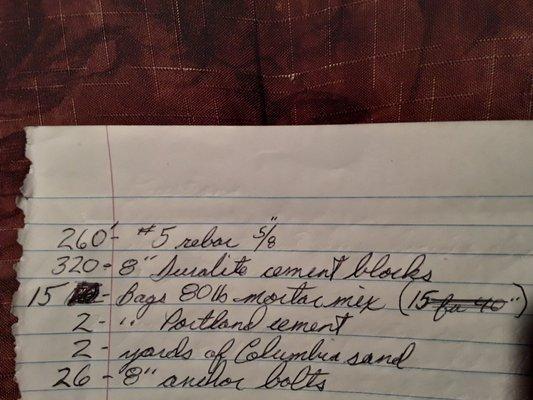 260'- #5 rebar 5/8"
320- 8" Duralite cement blocks
15 - Bags 80lb mortar mix (15 for 40")
2- " Portland cement
2- yards of Columbia sand
26 - 8" anchor bolts